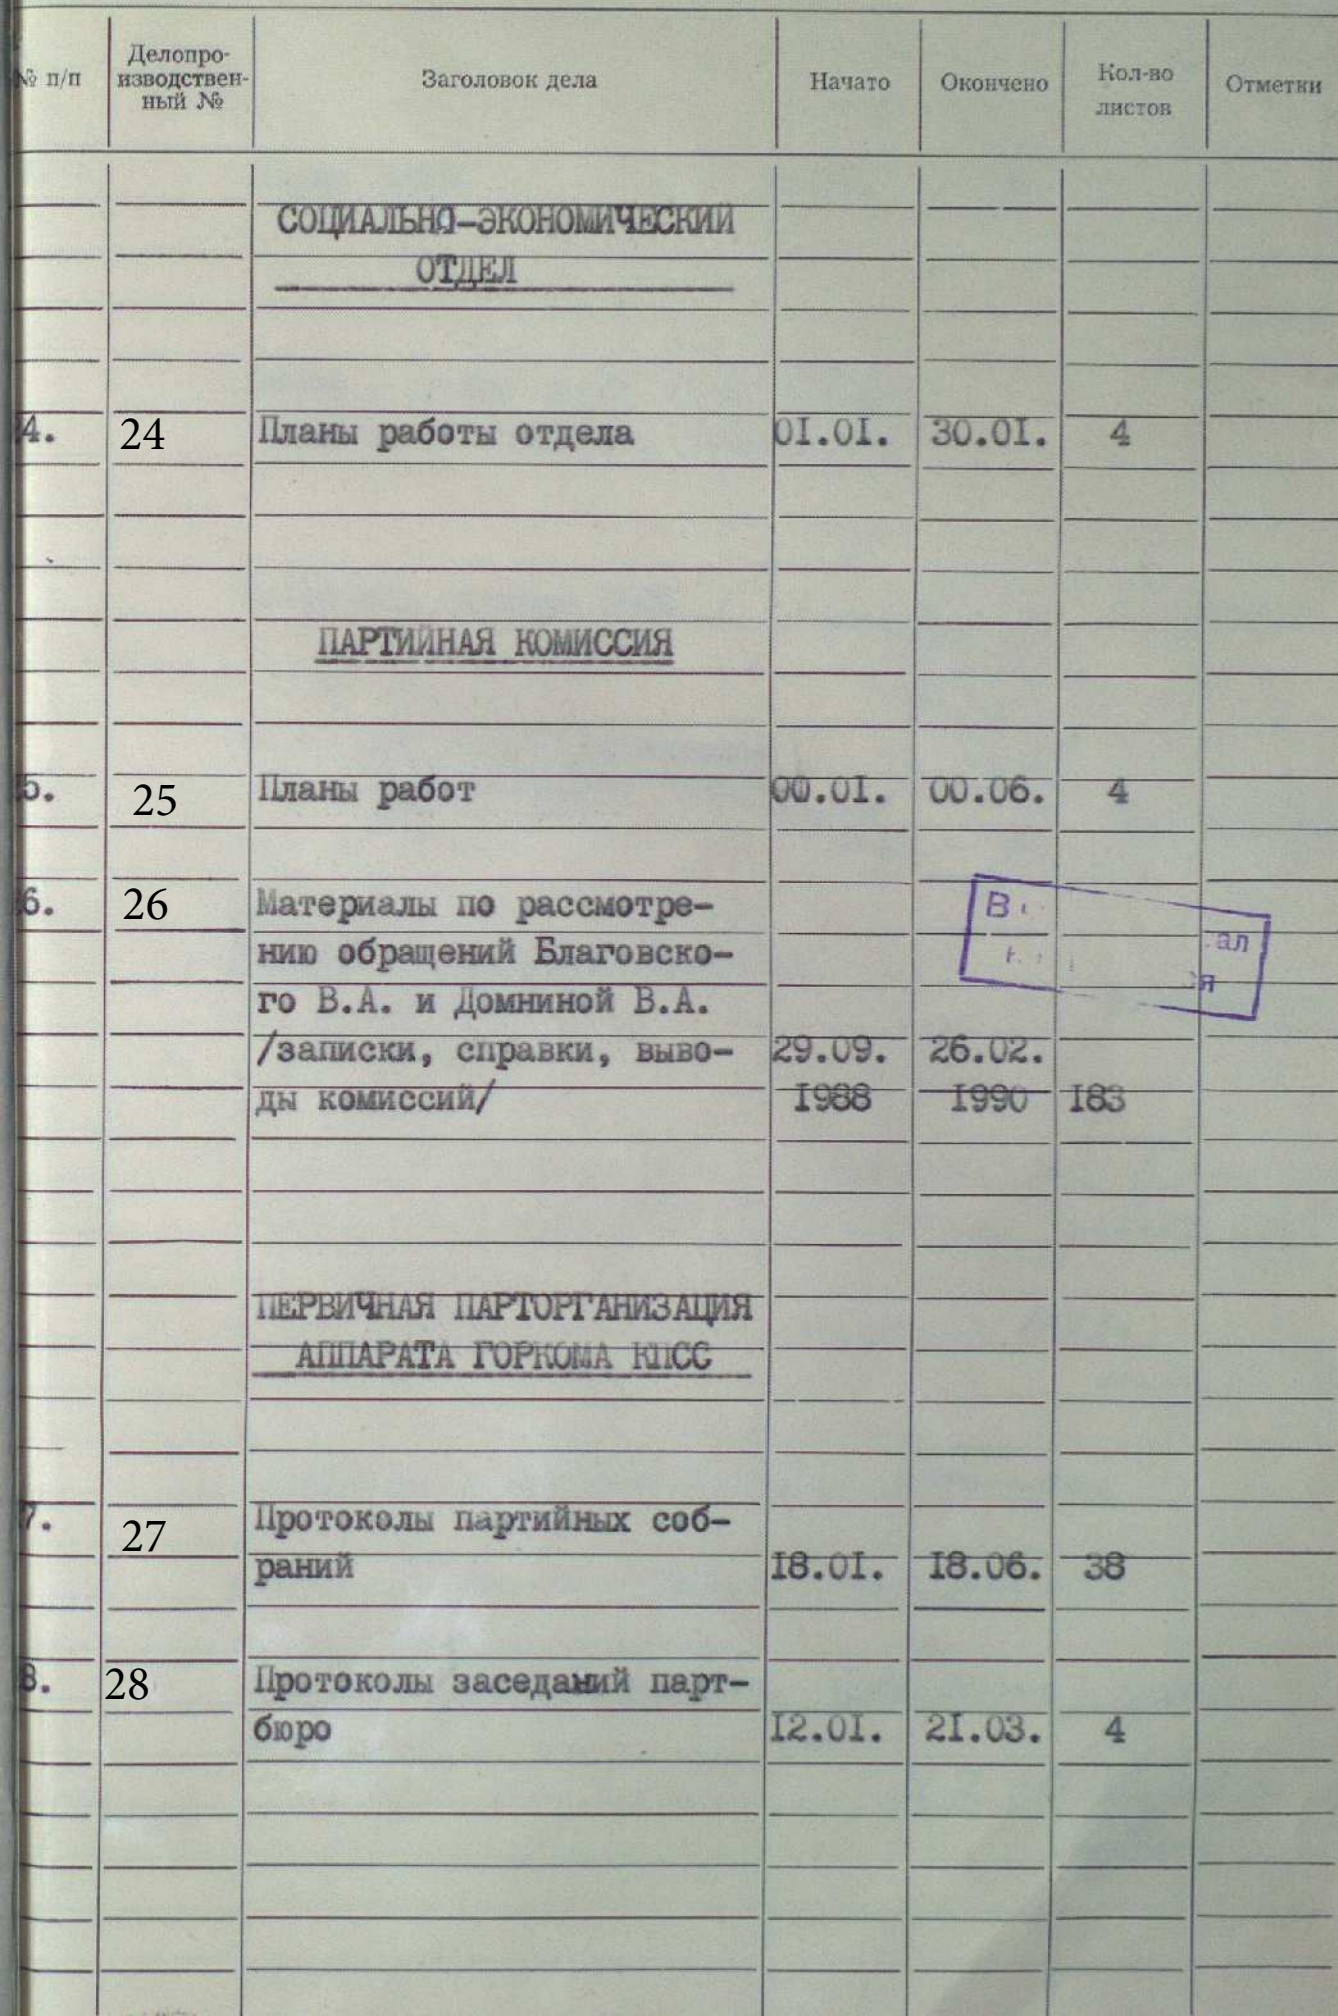 № п/п
Делопро-
изводствен-
ный №
Заголовок дела
Начато
Окончено
Кол-во
листов
Отметки
СОЦИАЛЬНО-ЭКОНОМИЧЕСКИЙ
ОТДЕЛ
4. 24 Планы работы отдела 01.01. 30.01. 4
ПАРТИЙНАЯ КОМИССИЯ
5. 25 Планы работ 00.01. 00.06. 4
6. 26 Материалы по рассмотре-
нию обращений Благовско-
го В.А. и Домниной В.А.
/записки, справки, выво- 29.09. 26.02.
ды комиссий/ 1988 1990 183
ПЕРВИЧНАЯ ПАРТОРГАНИЗАЦИЯ
АППАРАТА ГОРКОМА КПСС
7. 27 Протоколы партийных соб-
раний 18.01. 18.06. 38
8. 28 Протоколы заседаний парт-
бюро 12.01. 21.03. 4